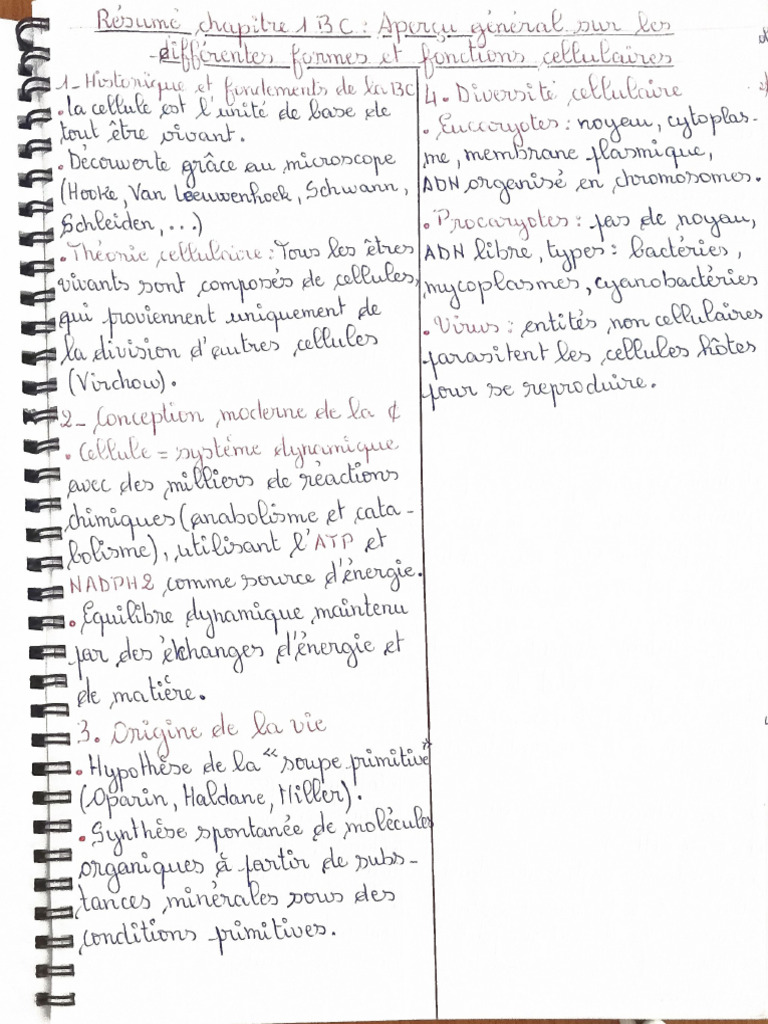 Résumé chapitre 1 BC : Aperçu général sur les
différentes formes et fonctions cellulaires
1- Historique et fondements de la BC
. la cellule est l'unité de base de
tout être vivant.
. Découverte grâce au microscope
(Hooke, Van Leeuwenhoek, Schwann,
Schleiden, ...)
. Théorie cellulaire : Tous les êtres
vivants sont composés de cellules,
qui proviennent uniquement de
la division d'autres cellules
(Virchow).
2- Conception moderne de la ¢
. Cellule = système dynamique
avec des milliers de réactions
chimiques (anabolisme et cata-
bolisme), utilisant l'ATP et
NADPH2 comme source d'énergie.
. Equilibre dynamique maintenu
par des échanges d'énergie et
de matière.
3. Origine de la vie
. Hypothèse de la "soupe primitive"
(Oparin, Haldane, Miller).
. Synthèse spontanée de molécules
organiques à partir de subs-
tances minérales sous des
conditions primitives.
4. Diversité cellulaire
. Eucaryotes : noyau, cytoplas-
me, membrane plasmique,
ADN organisé en chromosomes.
. Procaryotes : pas de noyau,
ADN libre, types : bactéries,
mycoplasmes, cyanobactéries
. Virus : entités non cellulaires
parasitent les cellules hôtes
pour se reproduire.